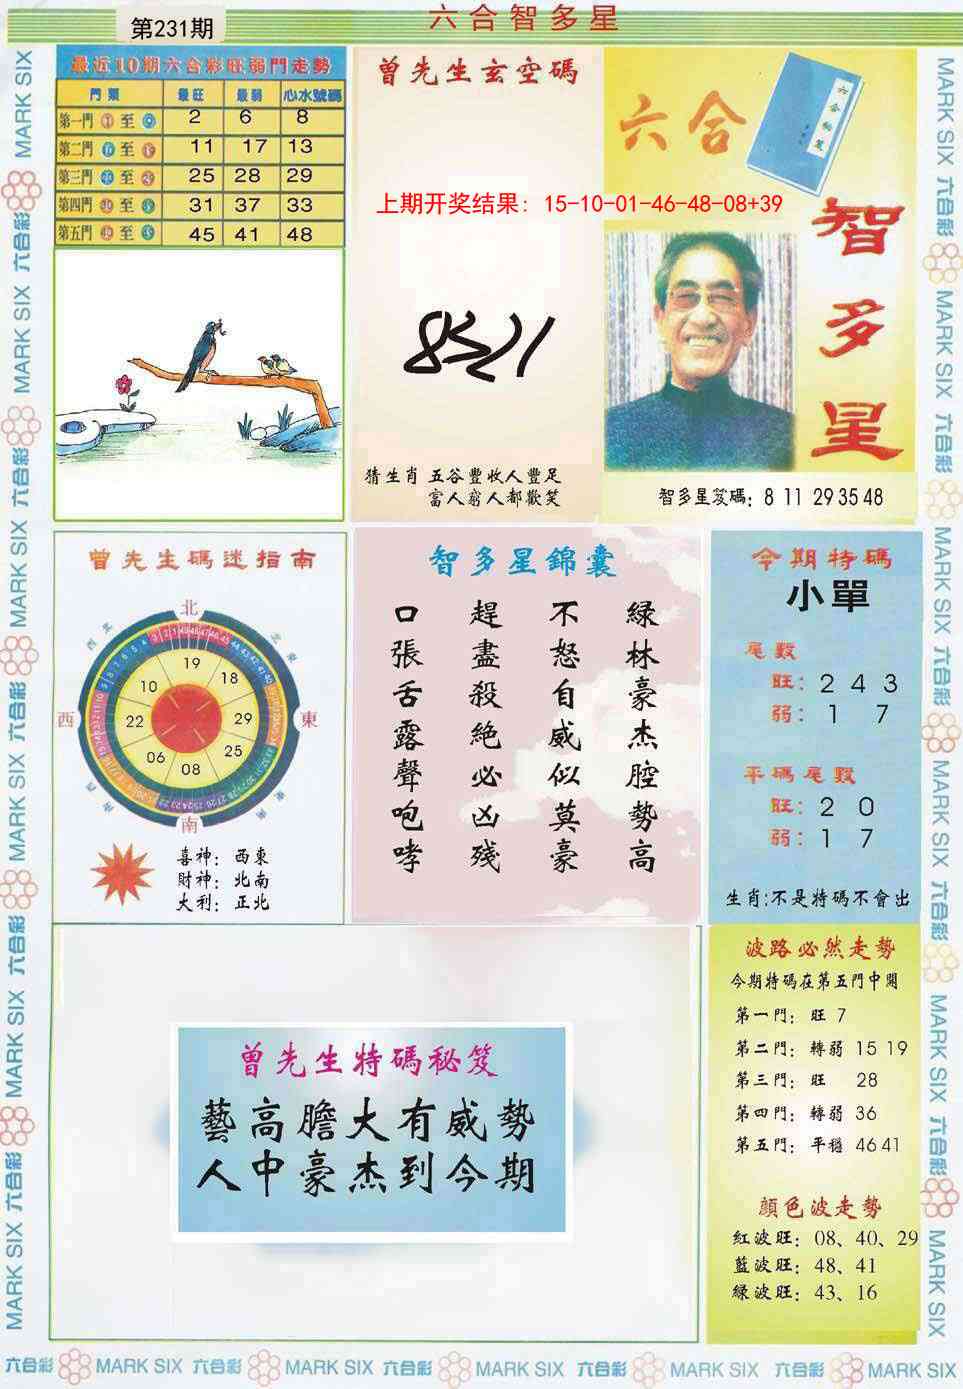 第231期
六合智多星
最近10期六合彩旺弱門走勢
門類 最旺 最弱 心水號碼
第一門 至 2 6 8
第二門 至 11 17 13
第三門 至 25 28 29
第四門 至 31 37 33
第五門 至 45 41 48
曾先生玄空碼
上期开奖结果: 15-10-01-46-48-08+39
猜生肖 五谷豐收人豐足
富人窮人都歡笑
六合
智多星
智多星笈碼: 8 11 29 35 48
曾先生碼迷指南
北
東
南
西
19
18
29
25
08
06
22
10
喜神: 西東
財神: 北南
大利: 正北
智多星錦囊
綠林豪杰腔勢高
不怒自威似莫豪
趕盡殺絕必凶殘
口張舌露聲咆哮
今期特碼
小單
尾數
旺: 2 4 3
弱: 1 7
平碼尾數
旺: 2 0
弱: 1 7
生肖:不是特碼不會出
曾先生特碼秘笈
藝高膽大有威勢
人中豪杰到今期
波路必然走勢
今期特碼在第五門中開
第一門: 旺 7
第二門: 轉弱 15 19
第三門: 旺 28
第四門: 轉弱 36
第五門: 平穩 46 41
顏色波走勢
紅波旺: 08、40、29
藍波旺: 48、41
綠波旺: 43、16
六合彩 MARK SIX 六合彩 MARK SIX 六合彩 MARK SIX 六合彩 MARK SIX